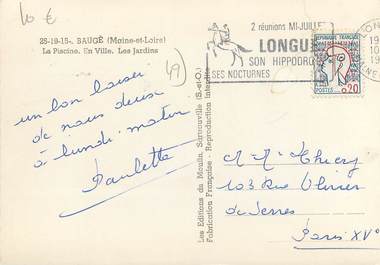 10 €
25-19-15-. BAUGÉ (Maine-et-Loire)
La Piscine. En Ville. Les Jardins
49)
un bon baiser
de nous deux
à lundi matin
Paulette
Les Editions du Moulin, Sartrouville (S.-et-O.)
Fabrication Française. Reproduction Interdite
2 réunions MI-JUILLET
LONGUÉ
SON HIPPODROME
SES NOCTURNES
REPUBLIQUE FRANÇAISE
POSTES 0,20
M. Mme Thiery
103 Rue Olivier
de Serres
Paris XVe